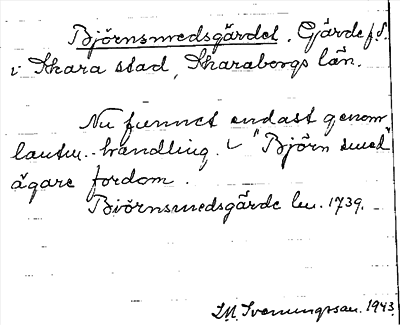 Björnsmedsgärdet. Gärde f.d.
i Skara stad, Skaraborgs län.
Nu funnet endast genom
lantm.-handling. "Björn smed"
ägare fordom.
Björnsmedsgärde lm. 1739.
Svenungsson. 1943.